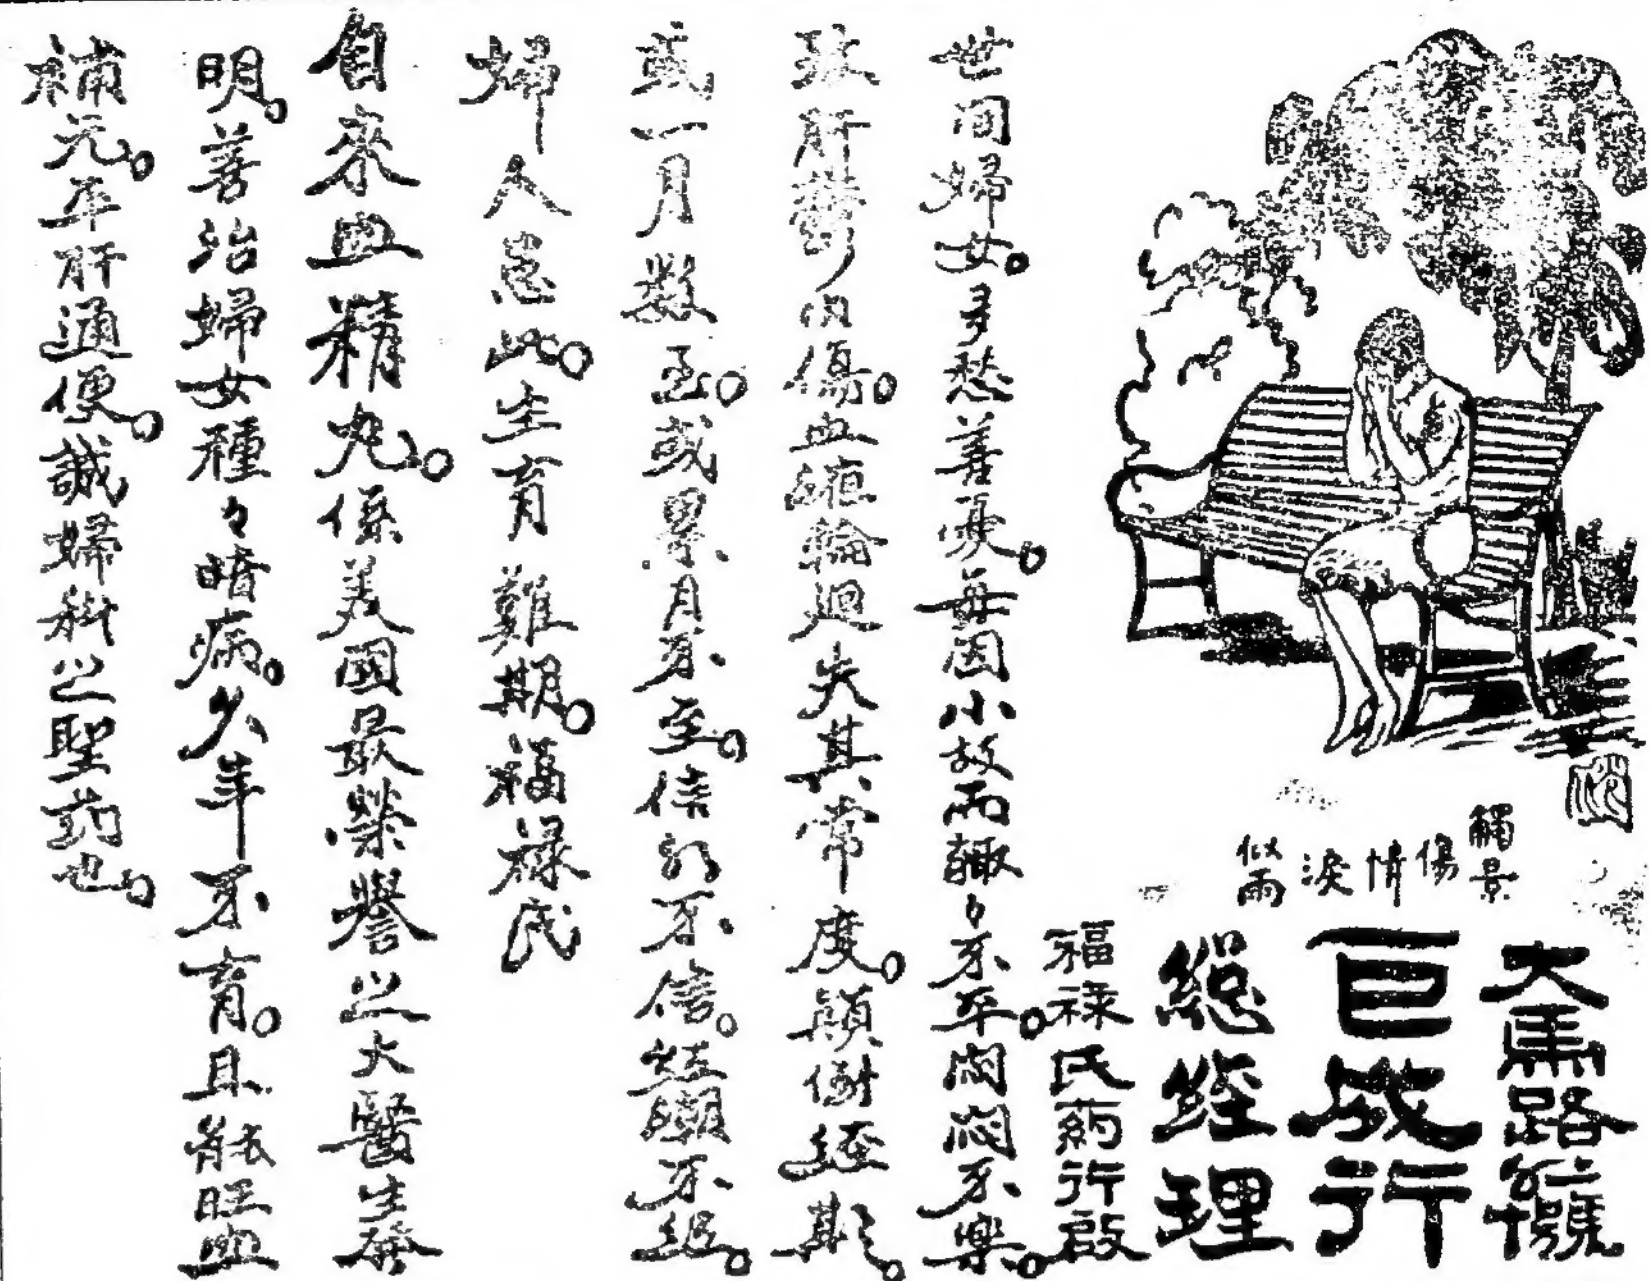 觸景傷情淚似雨
大馬路
巨成行
總經理
福祿氏葯行啟
世间婦女。多愁善憂。每因小故而輙々不平。闷闷不樂。
致肝鬱内傷。血經輪廻失其常度。顛倒經期。
或一月數至。或累月不至。信不信。潮不
婦人患此。生育難期。福祿氏
自來血精丸。係美國最榮譽之大醫生發
明。善治婦女種々暗病。久年不育。且能旺血
補元。平肝通便。誠婦科之聖药也。